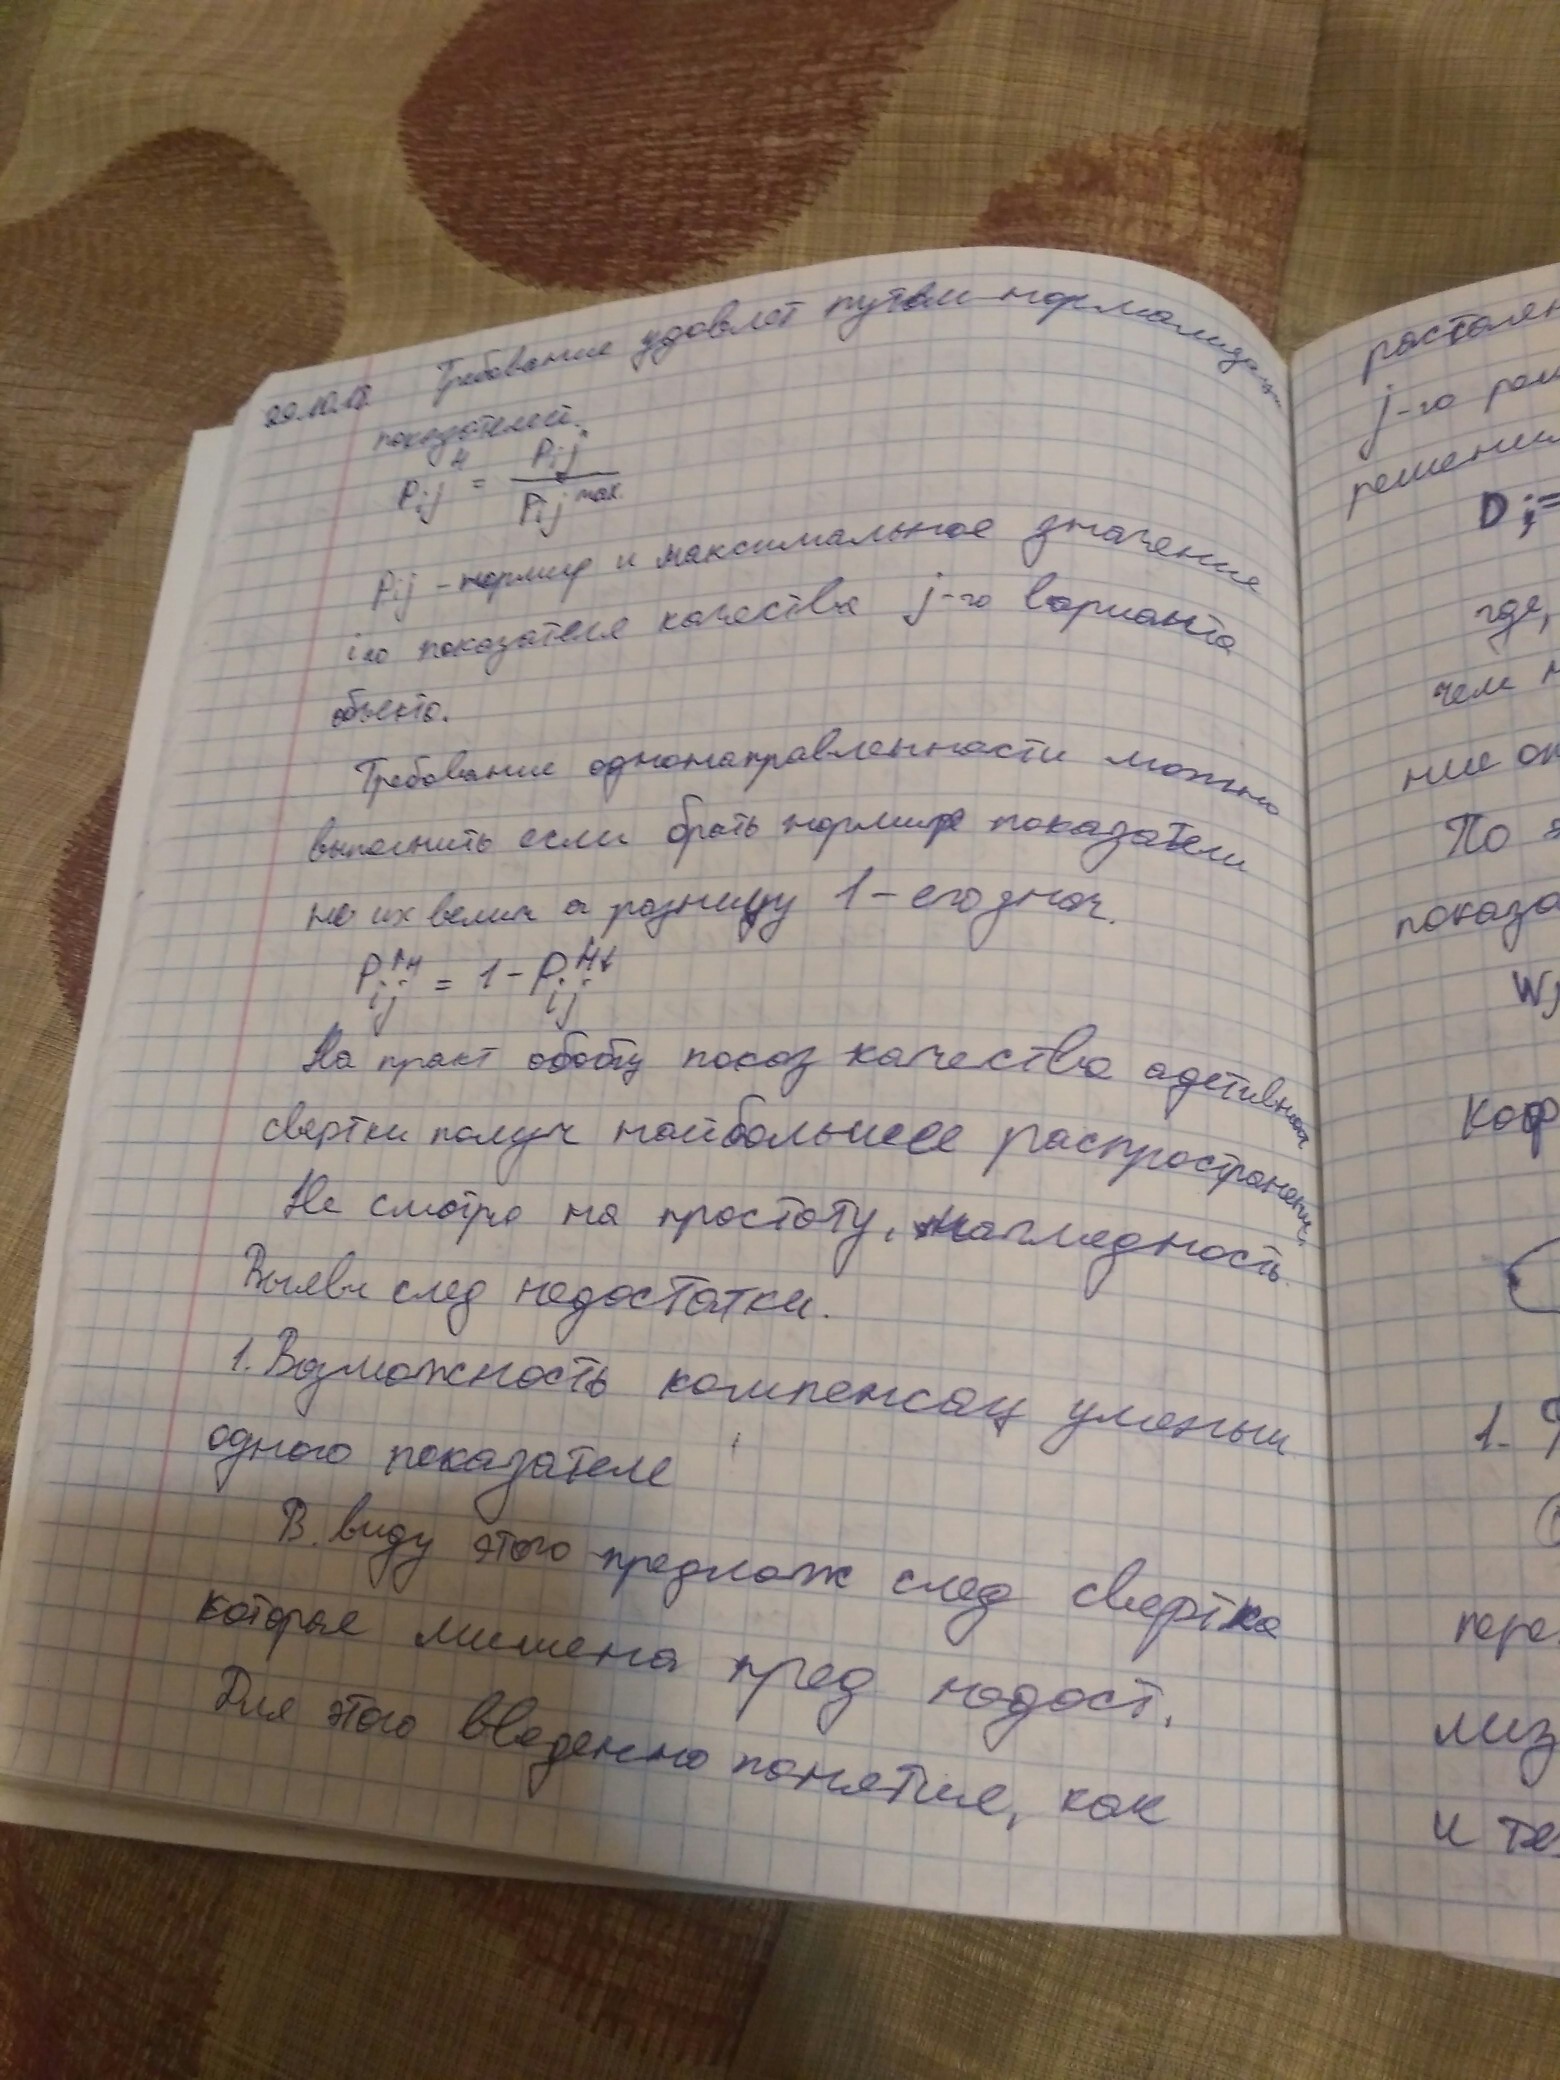 29.10.18 Требование удовлет путем нормализации
показателей.
Pij^н = Pij / Pij^max.
Pij - нормир и максимальное значение
i-го показателя качества j-го варианта
объекта.
Требование однонаправленности можно
выполнить если брать нормир показатели
не их велич а разницу 1 - его знач.
Pij^н = 1 - Pij^н
На практ обобщ показ качества адетивной
свертки получ наибольшее распространение.
Не смотря на простоту, наглядность.
Выявл след недостатки.
1. Возможность компенсац уменьш
одного показателя
В виду этого предлож след свертка
которые лишена пред недост.
Для этого введенно понятие, как
растоян
j-го
решени
Dj=
где,
чем н
ние
По
показа
Wj
Коэф
1.
пере
лиз
и те